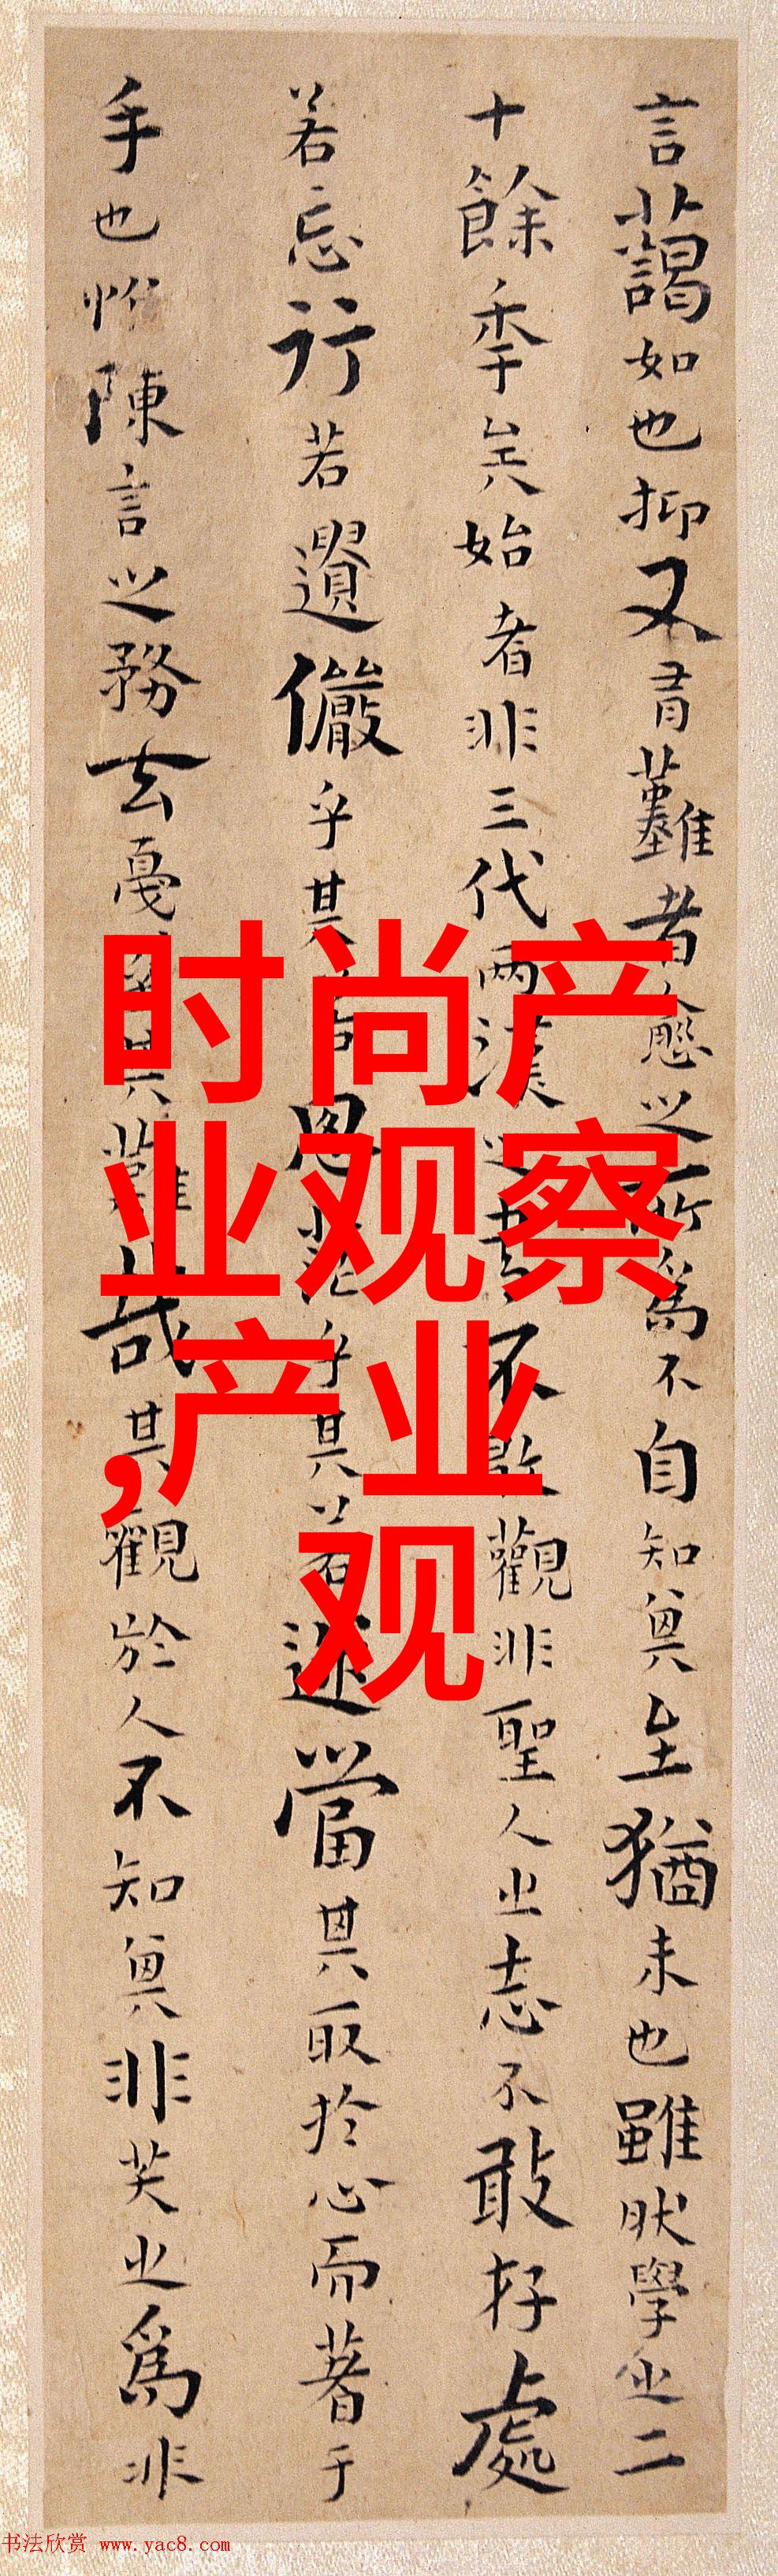 言藹如也抑又有難者愈之所爲不自知其至猶未也雖然學之二
十餘年矣始者非三代兩漢之書不敢觀非聖人之志不敢存處
若忘行若遺儼乎其若思茫乎其若迷當其取於心而著于
手也惟陳言之務去戛乎其難哉其觀於人不知其非笑之爲非
时尚产
业观察
,产业
观
书法欣赏 www.yac8.com